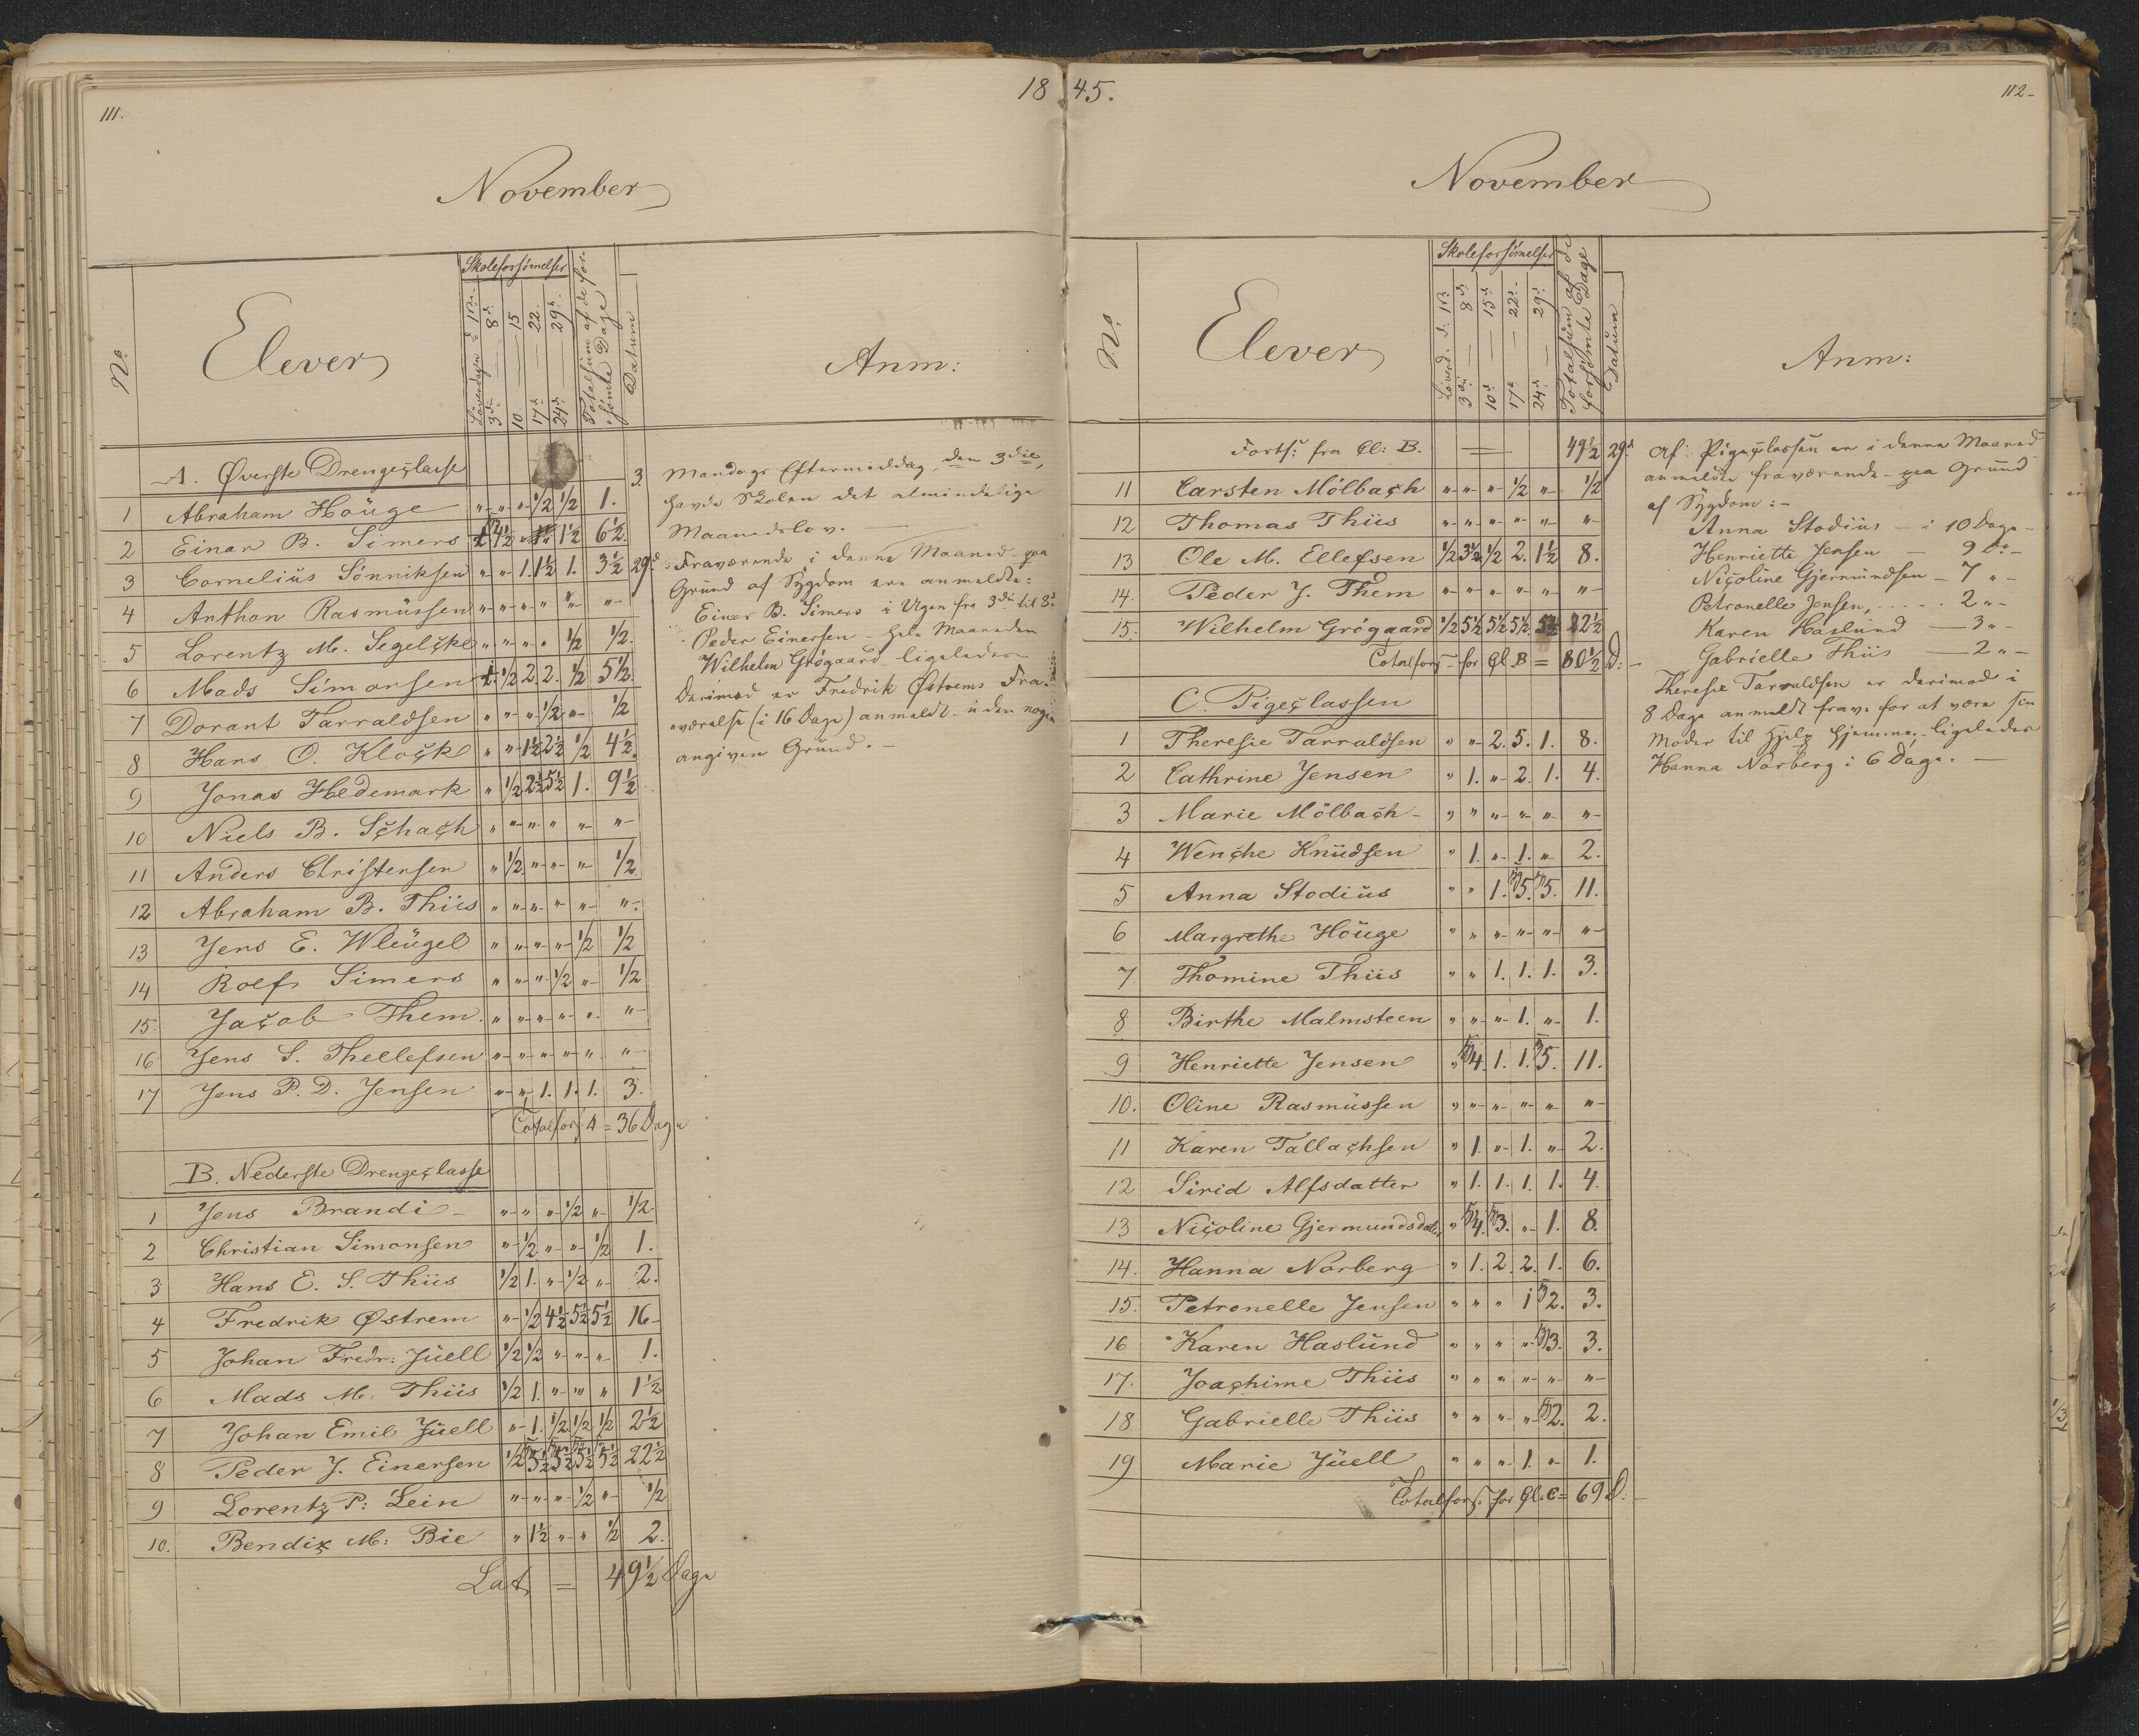 111.
18
November
No.
Elever
Skoleforsömelser
Löverdagen d. 1ste.
3die — 8d.
10 — 15
17d — 22.
24d — 29d.
Totalsum af de for-
sömte Dage
Datum
Anm:
A. Øverste Drengeclasse
1 Abraham Höuge " " " 1/2 1/2 1.
2 Einar B. Simers 4½ " 1½ 6½.
3 Cornelius Sönniksen " " 1. 1½ 1. 3½
4 Anthon Rasmussen " " " " " "
5 Lorentz M. Segelcke " " " " 1/2 1/2.
6 Mads Simonsen 1/2 2. 2. 1/2 5½.
7 Dorant Tarraldsen " " " 1/2 " 1/2
8 Hans O. Klock " " 1½ 2½ 1/2 4½.
9 Jonas Hedemark " 1/2 2½ 5½ 1. 9½
10 Niels B. Schach " " " " " "
11 Anders Christensen " 1/2 " " " 1/2.
12 Abraham B. Thiis " " " " " "
13 Jens E. Wleugel " " " " 1/2 1/2
14 Rolf Simers " " " 1/2 " 1/2
15. Jacob Them. " " " " " "
16 Jens S. Thellefsen " " " " " "
17 Jens P. D. Jensen " " 1. 1. 1. 3.
Totalfors. A = 36 Dage
B. Nederste Drengeclasse
1 Jens Brandi " " " 1/2 " 1/2.
2 Christian Simonsen " 1/2 " " 1/2 1.
3 Hans E. S. Thiis 1/2 1. " 1/2 " 2.
4 Fredrik Østrem " 1/2 4½ 5½ 5½ 16
5 Johan Fredr: Juell 1/2 1/2 " " " 1.
6 Mads M. Thiis 1/2 1. " " " 1½
7 Johan Emil Juell " 1. 1/2 1/2 1/2 2½
8 Peder J. Einersen 1/2 5½ 5½ 5½ 5½ 22½
9 Lorentz P: Lein " " " 1/2 " 1/2
10. Bendix M: Bie " 1½ " " 1/2 2.
Lat = 49½ Dage
3. Mandags Eftermiddag, den 3die,
havde Skolen det almindelige
Maanedslov. —
29d. Fraværende i denne Maaned - paa
Grund af Sygdom ere anmeldte:
Einar B. Simers i Ugen fra 3die til 8d
Peder Einersen - hele Maaneden
Wilhelm Grögaard ligeledes
Derimod er Fredrik Østrems Fra-
værelse (i 16 Dage) anmeldt uden nogen
angiven Grund. —
45.
112
November
No.
Elever
Skoleforsömelser
Löverd. d. 1ste
3die — 8d.
10d. — 15d.
17d — 22d.
24d. — 29d.
Totalsum af de
forsömte Dage
Datum
Anm:
Forts: fra Cl: B. = 49½
11 Carsten Mölbach " " " 1/2 " 1/2
12 Thomas Thiis " " " " " "
13 Ole M. Ellefsen 1/2 3½ 1/2 2. 1½ 8.
14. Peder J. Them " " " " " "
15. Wilhelm Grögaard 1/2 5½ 5½ 5½ 5½ 22½
Totalfors for Cl B = 80½ D:
C. Pigeclassen
1 Theresie Tarraldsen " " 2. 5. 1. 8.
2 Cathrine Jensen " 1. " 2. 1. 4.
3 Marie Mölbach " " " " " "
4 Wenche Knudsen " 1. " 1. " 2.
5 Anna Stodius " " 1. 5. 5. 11.
6 Margrethe Höuge " " " " " "
7 Thomine Thiis " " 1. 1. 1. 3.
8 Birthe Malmsteen " " " 1. " 1.
9 Henriette Jensen " 4. 1. 1. 5. 11.
10. Oline Rasmussen " " " " " "
11 Karen Tallachsen " 1. " 1. " 2.
12 Sirid Alfsdatter " 1. 1. 1. 1. 4.
13 Nicoline Gjermundsdatter " 4. 3. " 1. 8.
14. Hanna Norberg " 1. 2. 2. 1. 6.
15. Petronelle Jensen " " " 1 2. 3.
16 Karen Haslund " " " " 3. 3.
17. Joachime Thiis " " " " " "
18 Gabrielle Thiis " " " " 2. 2.
19 Marie Juell " " " 1. " 1.
Totalfors. for Cl. C = 69 D:
29d Af Pigeclassen er i denne Maaned
anmeldte fraværende - paa Grund
af Sygdom: -
Anna Stodius — i 10 Dage -
Henriette Jensen — 9 Do -
Nicoline Gjermundsen — 7 " -
Petronelle Jensen, . . . . 2 " -
Karen Haslund — 3 " -
Gabrielle Thiis — 2 " -
Theresie Tarraldsen er derimod i
8 Dage anmeldt frav. for at være sin
Moder til Hjelp hjemme, - ligeledes
Hanna Norberg i 6 Dage. —